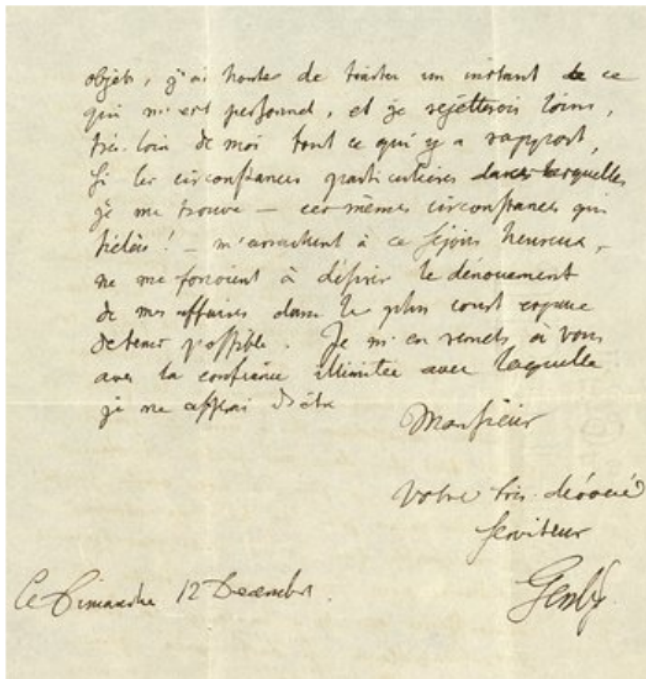 objets, j'ai honte de traiter un instant de ce
qui m'est personnel, et je rejetterois loin,
très-loin de moi tout ce qui y a rapport,
si les circonstances particulieres dans lesquelles
je me trouve — ces mêmes circonstances qui
hélas! — m'arrachent à ce séjour heureux,
ne me forçoient à désirer le dénouement
de mes affaires dans le plus court espace
de tems possible. Je m'en remets à vous
avec la confiance illimitée avec laquelle
je ne cesserai d'être
Monsieur
Votre très-dévoué
serviteur
Gentz
Ce Dimanche 12 Decembre.